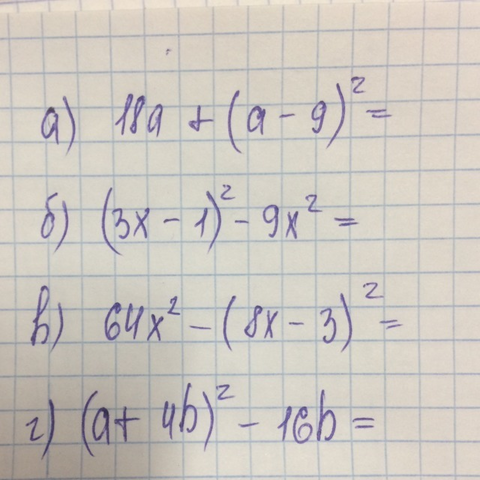 а) 18a + (a - 9)² =
б) (3x - 1)² - 9x² =
в) 64x² - (8x - 3)² =
г) (a + 4b)² - 16b =